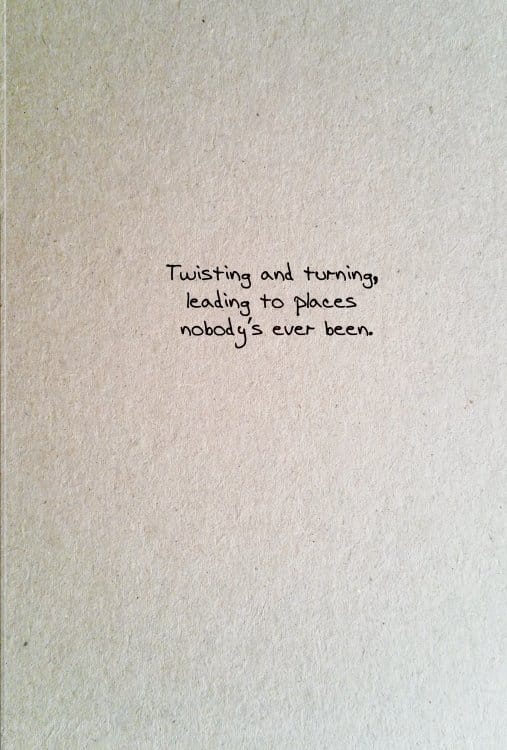 Twisting and turning,
leading to places
nobody's ever been.